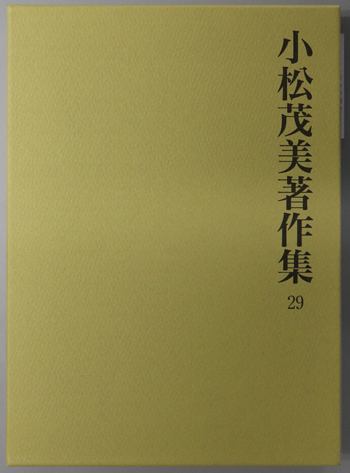 小松茂美著作集
29